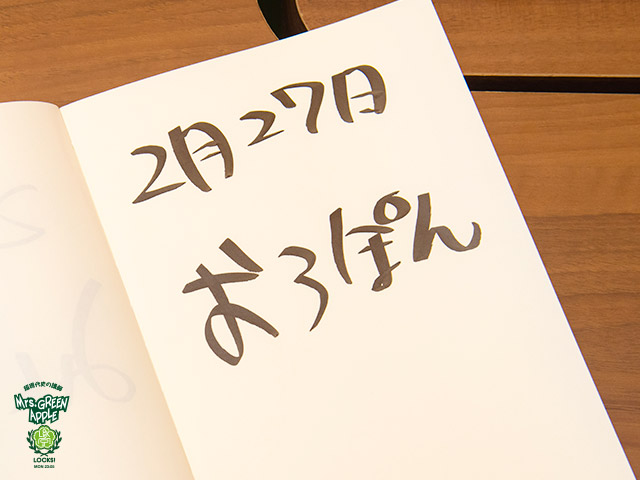 2月27日
おろぽん
音楽代史の講師
Mrs. GREEN
APPLE
LOCKS!
MON 23:05